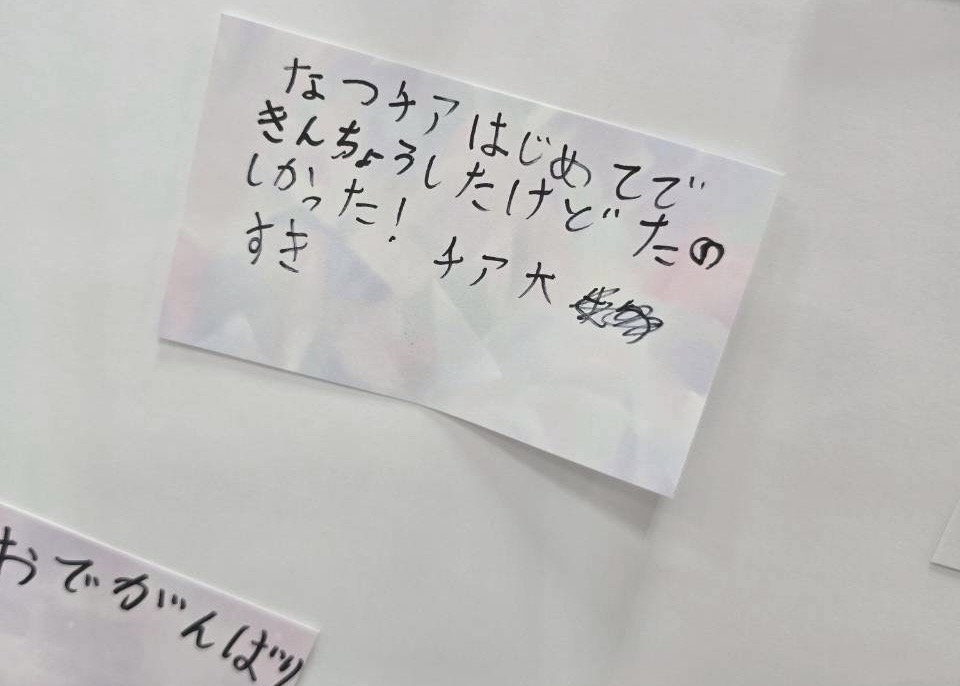 なつチアはじめてで
きんちょうしたけどたの
しかった! チア大
すき
おでがんばり